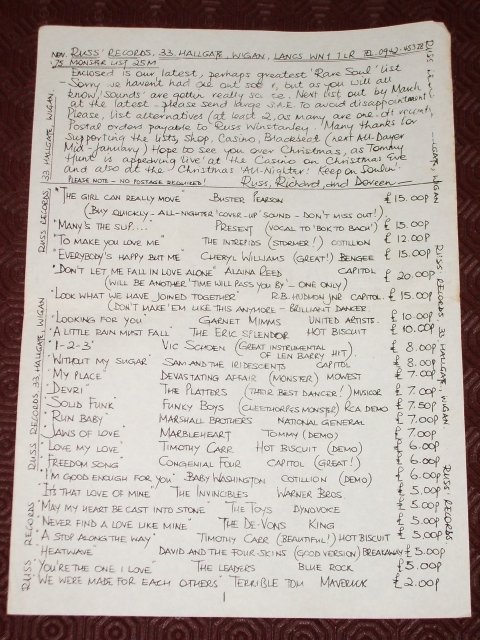 NOV. '75 RUSS' RECORDS, 33, HALLGATE, WIGAN, LANCS WN1 1LR TEL 0942-
MONSTER LIST 25M
Enclosed is our latest, perhaps greatest 'Rare Soul' list
- Sorry we haven't had one out sooner, but as you will all
know, 'Sounds' are gotten really scarce. Next list out by March
at the latest - please send large S.A.E. to avoid disappointment
Please, list alternatives (at least 2, as many are one-off records
Postal orders payable to Russ Winstanley. Many thanks for
supporting the lists, Shop, Casino, Blackbeat (next All-Dayer
Mid-January) Hope to see you over Christmas, as Tommy
Hunt is appearing 'live' at the Casino on Christmas Eve
and also at the Christmas 'All-Nighter'. Keep on Soulin'.
PLEASE NOTE - NO POSTAGE REQUIRED! Russ, Richard, and Doreen
"THE GIRL CAN REALLY MOVE" BUSTER PEARSON £15.00P
(BUY QUICKLY - ALL-NIGHTER 'COVER-UP' SOUND - DON'T MISS OUT!)
"MANY'S THE SLIP...." PRESENT (VOCAL TO 'BOK TO BACH') £15.00P
"TO MAKE YOU LOVE ME" THE INTREPIDS (STORMER!) COTILLION £12.00P
"EVERYBODY'S HAPPY BUT ME" CHERYL WILLIAMS (GREAT!) BENGEE £15.00P
"DON'T LET ME FALL IN LOVE ALONE" ALAINA REED CAPITOL £20.00P
(WILL BE ANOTHER 'TIME WILL PASS YOU BY' - ONE ONLY)
"LOOK WHAT WE HAVE JOINED TOGETHER" R.B. HUDMON JNR CAPITOL £15.00P
(DON'T MAKE 'EM LIKE THIS ANYMORE - BRILLIANT DANCER
"LOOKING FOR YOU" GARNET MIMMS UNITED ARTISTS £10.00P
"A LITTLE RAIN MUST FALL" THE ERIC SPLENDOR HOT BISCUIT £10.00P
"1-2-3" VIC SCHOEN (GREAT INSTRUMENTAL OF LEN BARRY HIT) £8.00P
"WITHOUT MY SUGAR" SAM AND THE IRIDESCENTS CAPITOL £8.00P
"MY PLACE" DEVASTATING AFFAIR (MONSTER) MOWEST £7.00P
"DEVRI" THE PLATTERS (THEIR BEST DANCER!) MUSICOR £7.00P
"SOLID FUNK" FUNKY BOYS (CLEETHORPES MONSTER) RCA DEMO £7.50P
"RUN BABY" MARSHALL BROTHERS NATIONAL GENERAL £7.00P
"JAWS OF LOVE" MARBLEHEART TOMMY (DEMO) £7.00P
"LOVE MY LOVE" TIMOTHY CARR HOT BISCUIT (DEMO) £6.00P
"FREEDOM SONG" CONGENIAL FOUR CAPITOL (GREAT!) £6.00P
"I'M GOOD ENOUGH FOR YOU" BABY WASHINGTON COTILLION (DEMO) £6.00P
"IT'S THAT LOVE OF MINE" THE INVINCIBLES WARNER BROS. £5.00P
"MAY MY HEART BE CAST INTO STONE" THE TOYS DYNOVOICE £5.00P
"NEVER FIND A LOVE LIKE MINE" THE DE-VONS KING £5.00P
"A STOP ALONG THE WAY" TIMOTHY CARR (BEAUTIFUL!) HOT BISCUIT £5.00P
"HEATWAVE" DAVID AND THE FOUR-SKINS (GOOD VERSION) BREAKAWAY £5.00P
"YOU'RE THE ONE I LOVE" THE LEADERS BLUE ROCK £5.00P
"WE WERE MADE FOR EACH OTHERS" TERRIBLE TOM MAVERICK £2.00P
1
RUSS RECORDS 33 HALLGATE WIGAN RUSS RECORDS, 33 HALLGATE, WIGAN
RUSS RECORDS 33 HALLGATE, WIGAN RUSS RECORDS